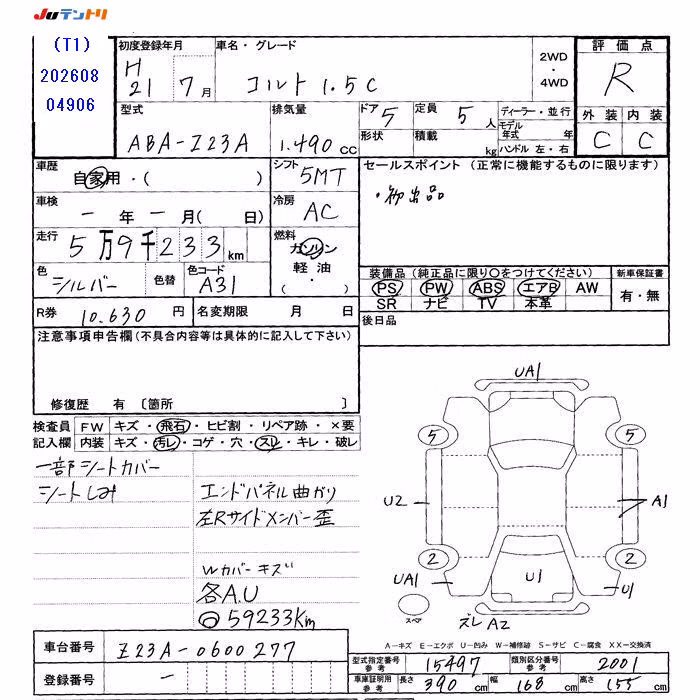 Juテントリ
(T1)
202608
04906
初度登録年月
H
21 7 月
車名・グレード
コルト 1.5C
2WD
・
4WD
評価点
R
外装 内装
C C
型式
ABA-Z23A
排気量
1.490 cc
ドア 5
形状
定員 5 人
積載 kg
ディーラー・並行
モデル年式 年
ハンドル 左・右
車歴
自家用・( )
シフト
5MT
セールスポイント (正常に機能するものに限ります)
・初出品
車検
- 年 - 月( 日)
冷房
AC
走行
5万9千233km
燃料
ガソリン
軽油
・
色
シルバー
色替
色コード
A31
装備品(純正品に限り○をつけてください)
PS PW ABS エアB AW
SR ナビ TV 本革
新車保証書
有・無
R券 10.630 円
名変期限 月 日
後日品
注意事項申告欄(不具合内容等は具体的に記入して下さい)
修復歴 有 〔箇所 〕
検査員 FW キズ・飛石・ヒビ割・リペア跡・×要
記入欄 内装 キズ・汚レ・コゲ・穴・スレ・キレ・破レ
一部シートカバー
シートしみ
エンドパネル曲がり
左Rサイドメンバー歪
Wカバーキズ
各A.U
59233Km
UA1
5 5
U2 A1
2 2
UA1 U1 U1
スペア
ズレ A2
A－キズ E－エクボ U－凹み W－補修跡 S－サビ C－腐食 XX－交換済
車台番号 Z23A-0600277
登録番号 -
型式指定番号 参考 15497
類別区分番号 参考 2001
車庫証明用 参考 長さ 390 cm 幅 168 cm 高さ 155 cm